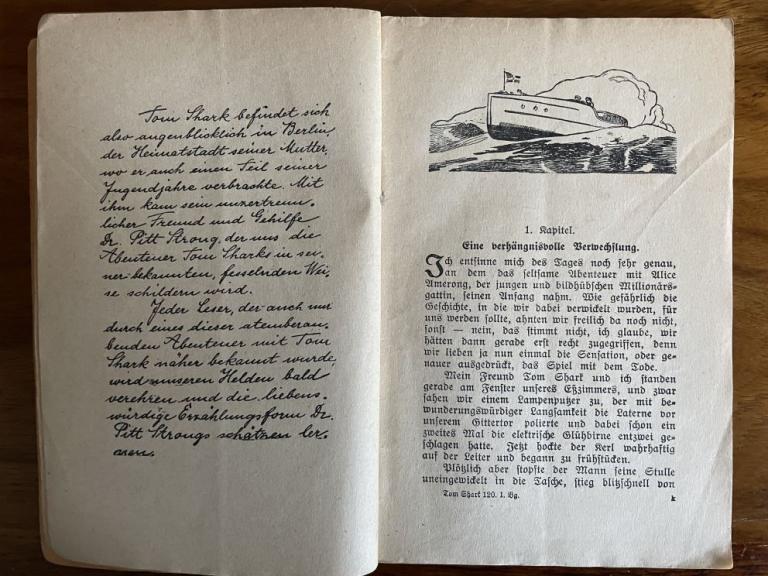 Tom Shark befindet sich
also augenblicklich in Berlin,
der Heimatstadt seiner Mutter,
wo er auch einen Teil seiner
Jugendjahre verbrachte. Mit
ihm kam sein unzertrenn-
licher Freund und Gehilfe
Dr. Pitt Strong, der uns die
Abenteuer Tom Sharks in sei-
ner bekannten, fesselnden Wei-
se schildern wird.
Jeder Leser, der auch nur
durch eines dieser atemberau-
benden Abenteuer mit Tom
Shark näher bekannt wurde,
wird unseren Helden bald
verehren und die liebens-
würdige Erzählungsform Dr.
Pitt Strongs schätzen ler-
nen.
1. Kapitel.
Eine verhängnisvolle Verwechslung.
Ich entsinne mich des Tages noch sehr genau,
an dem das seltsame Abenteuer mit Alice
Amerong, der jungen und bildhübschen Millionärs-
gattin, seinen Anfang nahm. Wie gefährlich die
Geschichte, in die wir dabei verwickelt wurden, für
uns werden sollte, ahnten wir freilich da noch nicht,
sonst — nein, das stimmt nicht, ich glaube, wir
hätten dann gerade erst recht zugegriffen, denn
wir lieben ja nun einmal die Sensation, oder ge-
nauer ausgedrückt, das Spiel mit dem Tode.
Mein Freund Tom Shark und ich standen
gerade am Fenster unseres Eßzimmers, und zwar
sahen wir einem Lampenputzer zu, der mit be-
wunderungswürdiger Langsamkeit die Laterne vor
unserem Gittertor polierte und dabei schon ein
zweites Mal die elektrische Glühbirne entzwei ge-
schlagen hatte. Jetzt hockte der Kerl wahrhaftig
auf der Leiter und begann zu frühstücken.
Plötzlich aber stopfte der Mann seine Stulle
uneingewickelt in die Tasche, stieg blitzschnell von
Tom Shark 120. 1. Bg.
k